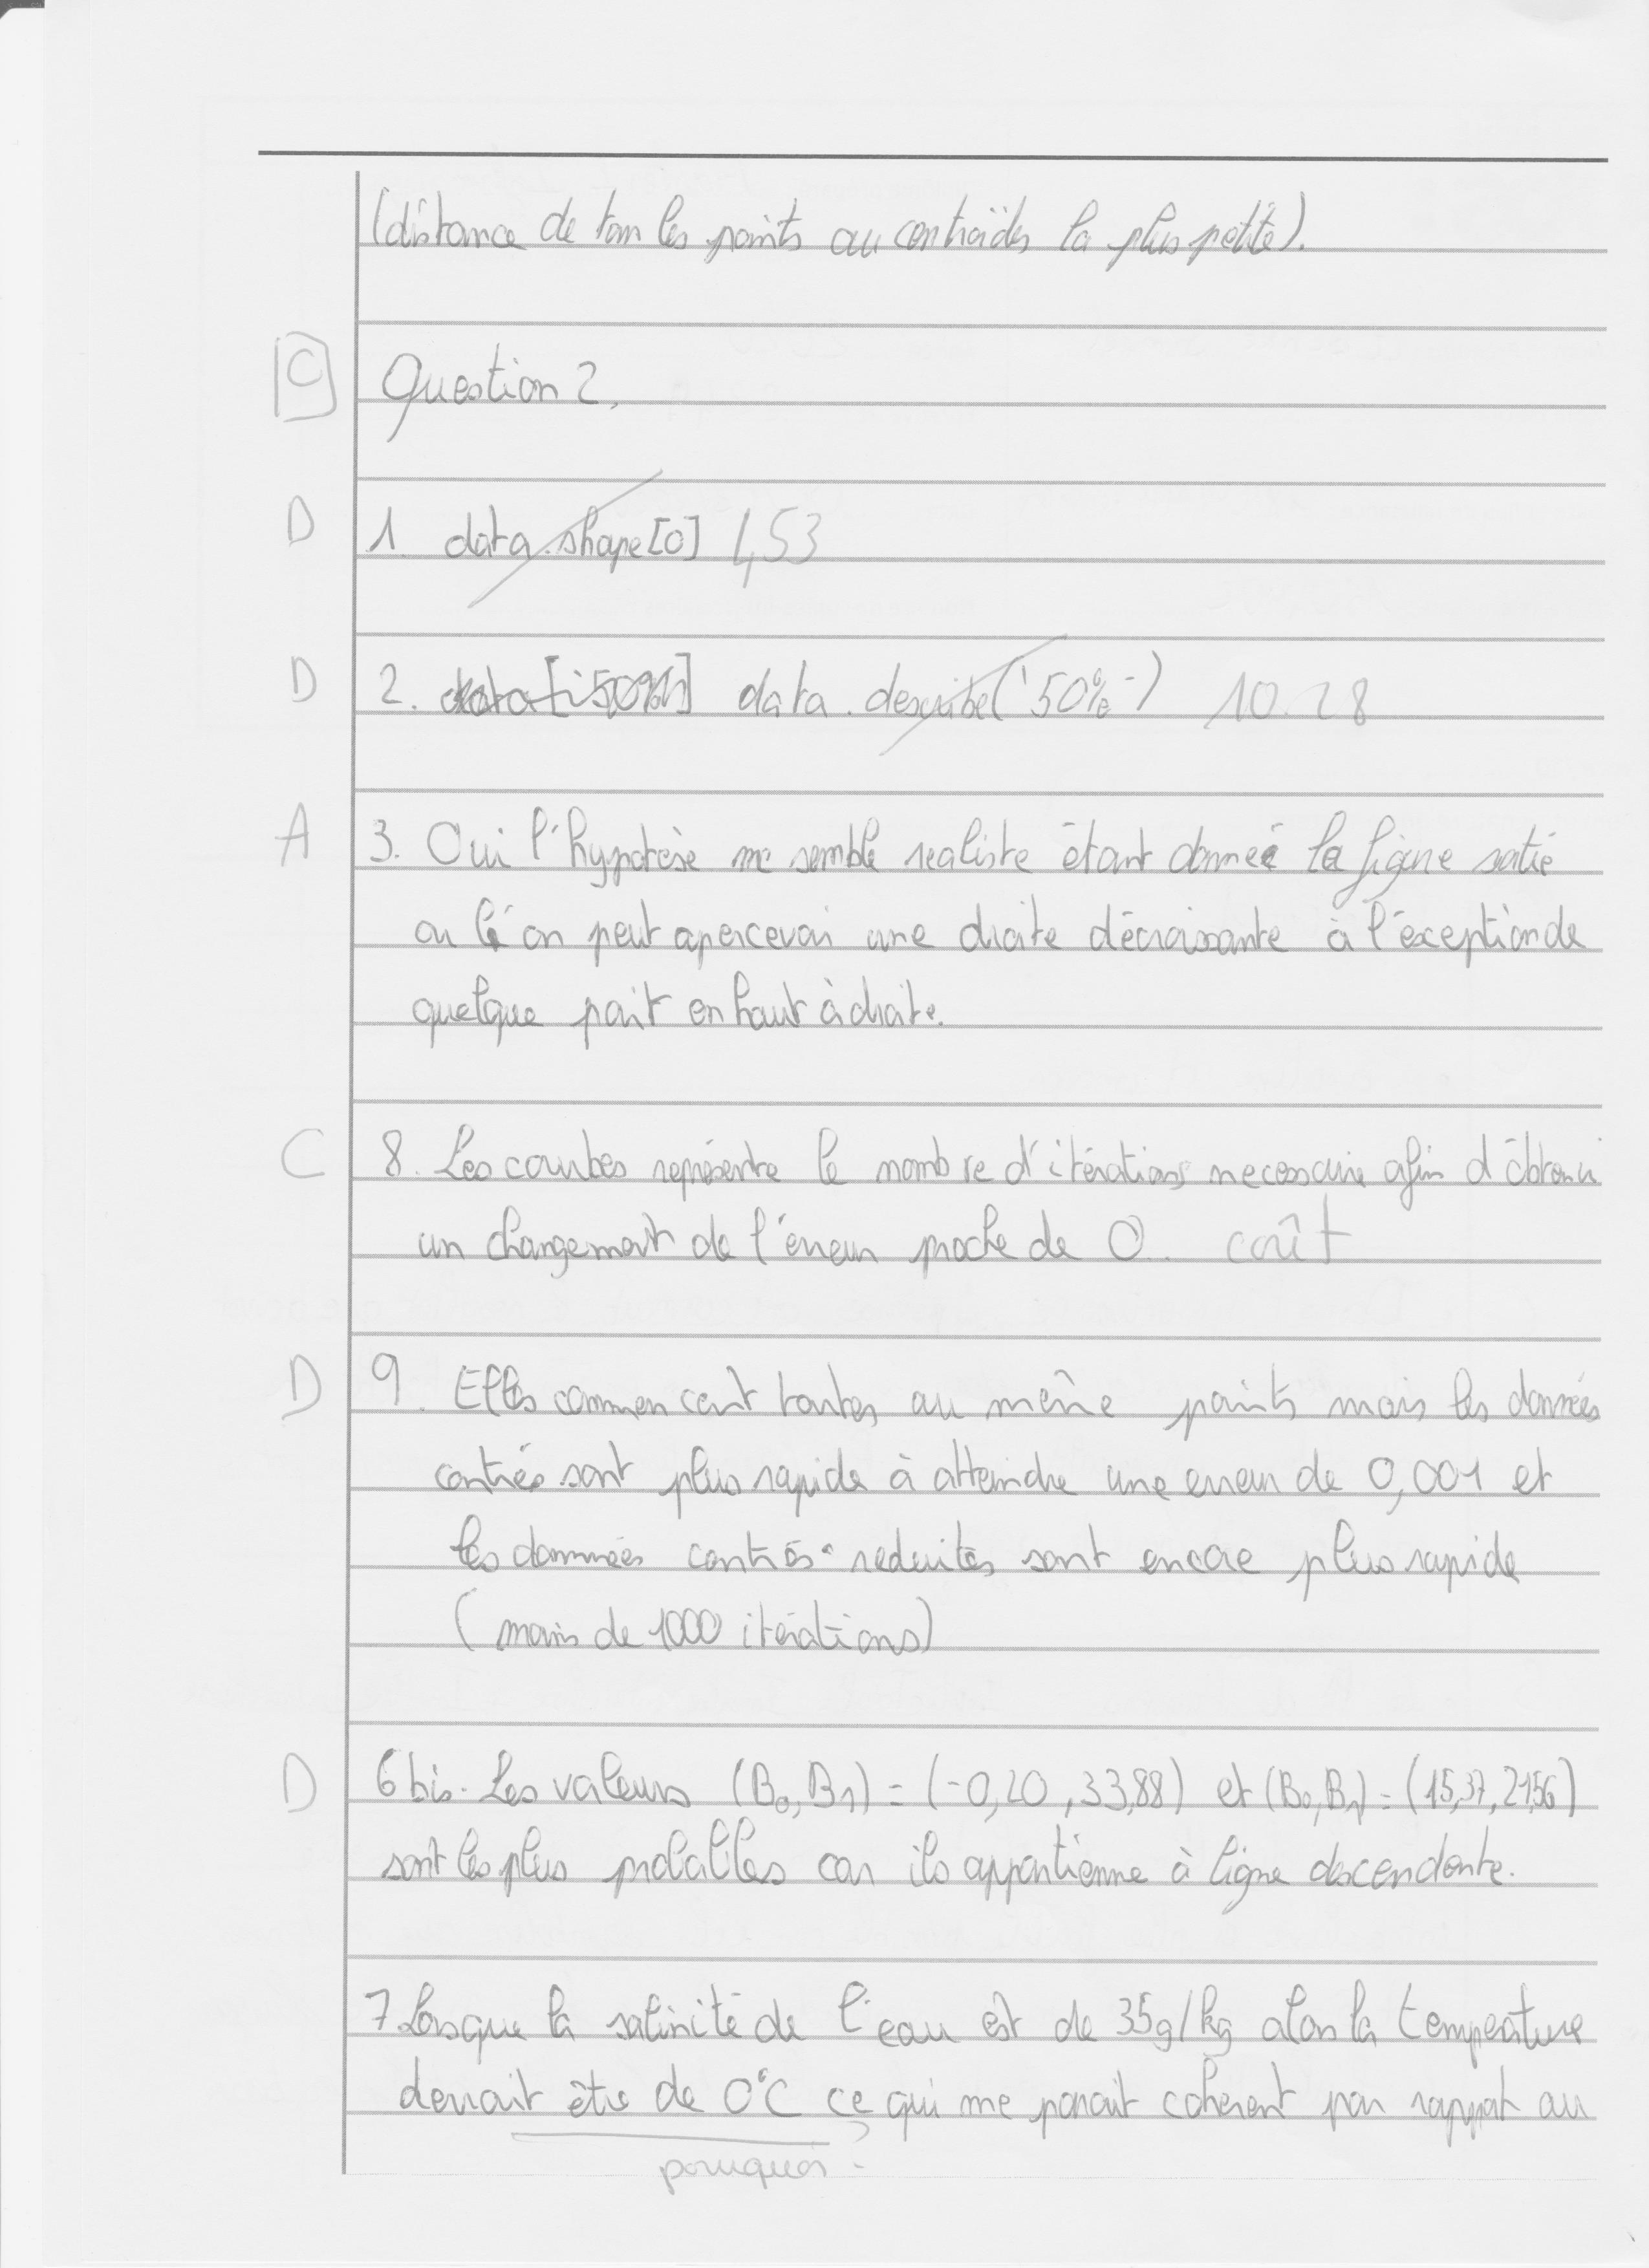 (distance de tous les points au centroïdes la plus petite).
C Question 2.
D 1. data.shape[0] 453
D 2. data.describe('50%') 10.28
A 3. Oui l'hypotèse me semble realiste étant donnée la figure
ou l'on peut apercevoir une droite décroissante à l'éxception de
quelque point en haut à droite.
C 8. Les courbes représente le nombre d'itérations necessaire afin d'obtenir
un changement de l'erreur proche de 0. coût
D 9. Elles commencent toutes au même points mais les données
centrées sont plus rapide à atteindre une erreur de 0,001 et
les données centrés-reduites sont encore plus rapide
(moins de 1000 itérations)
D 6 bis. Les valeurs (B0, B1) = (-0,20, 33,88) et (B0, B1) = (15,37, 21,56)
sont les plus probables car ils appartienne à ligne descendante.
7 Lorsque la salinité de l'eau est de 35g/kg alors la température
devrait être de 0°C ce qui me parait cohérent par rapport au
pourquoi